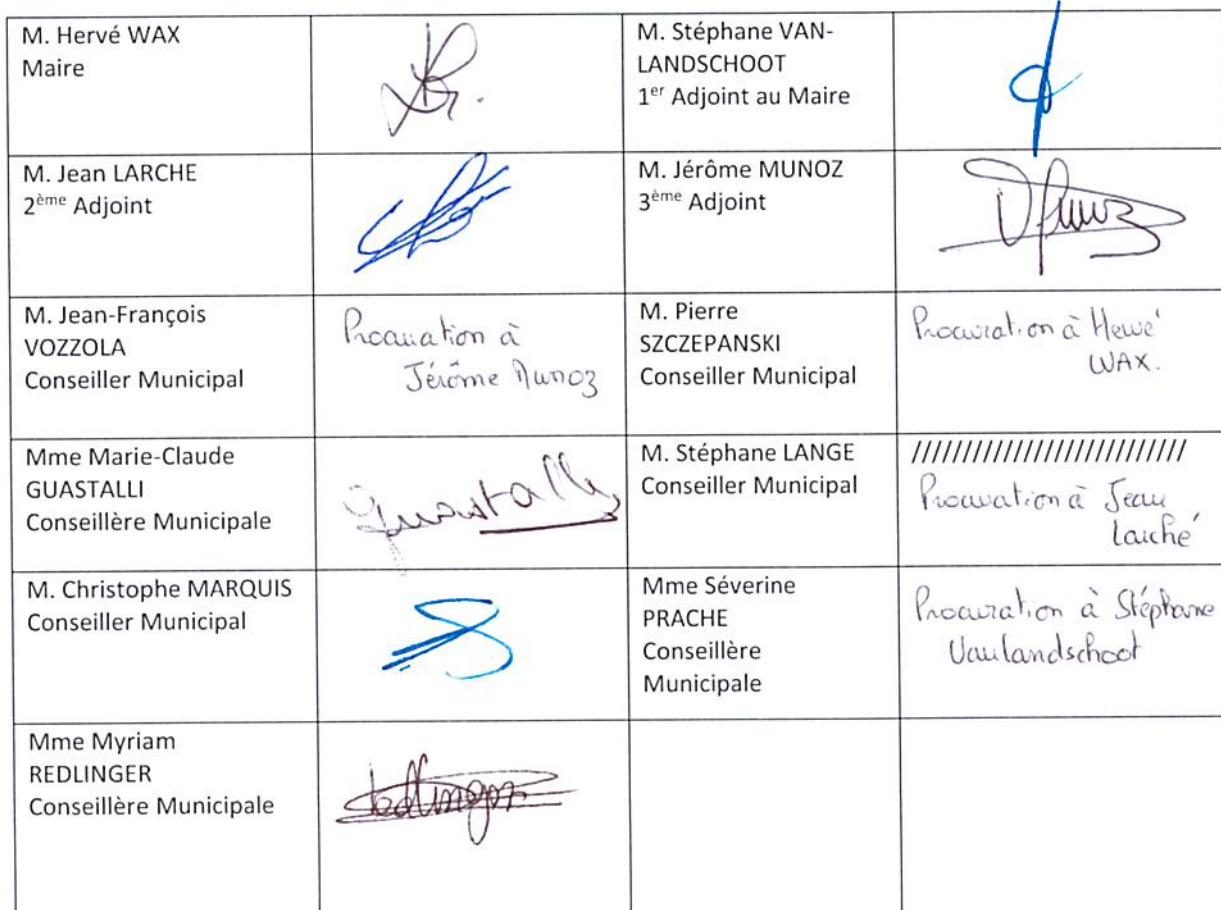 M. Hervé WAX
Maire
M. Stéphane VAN-
LANDSCHOOT
1er Adjoint au Maire
M. Jean LARCHE
2ème Adjoint
M. Jérôme MUNOZ
3ème Adjoint
M. Jean-François
VOZZOLA
Conseiller Municipal
Procuration à
Jérôme Munoz
M. Pierre
SZCZEPANSKI
Conseiller Municipal
Procuration à Hervé
WAX.
Mme Marie-Claude
GUASTALLI
Conseillère Municipale
Guastalli
M. Stéphane LANGE
Conseiller Municipal
//////////////////////////
Procuration à Jean
Larché
M. Christophe MARQUIS
Conseiller Municipal
Mme Séverine
PRACHE
Conseillère
Municipale
Procuration à Stéphane
Vanlandschoot
Mme Myriam
REDLINGER
Conseillère Municipale